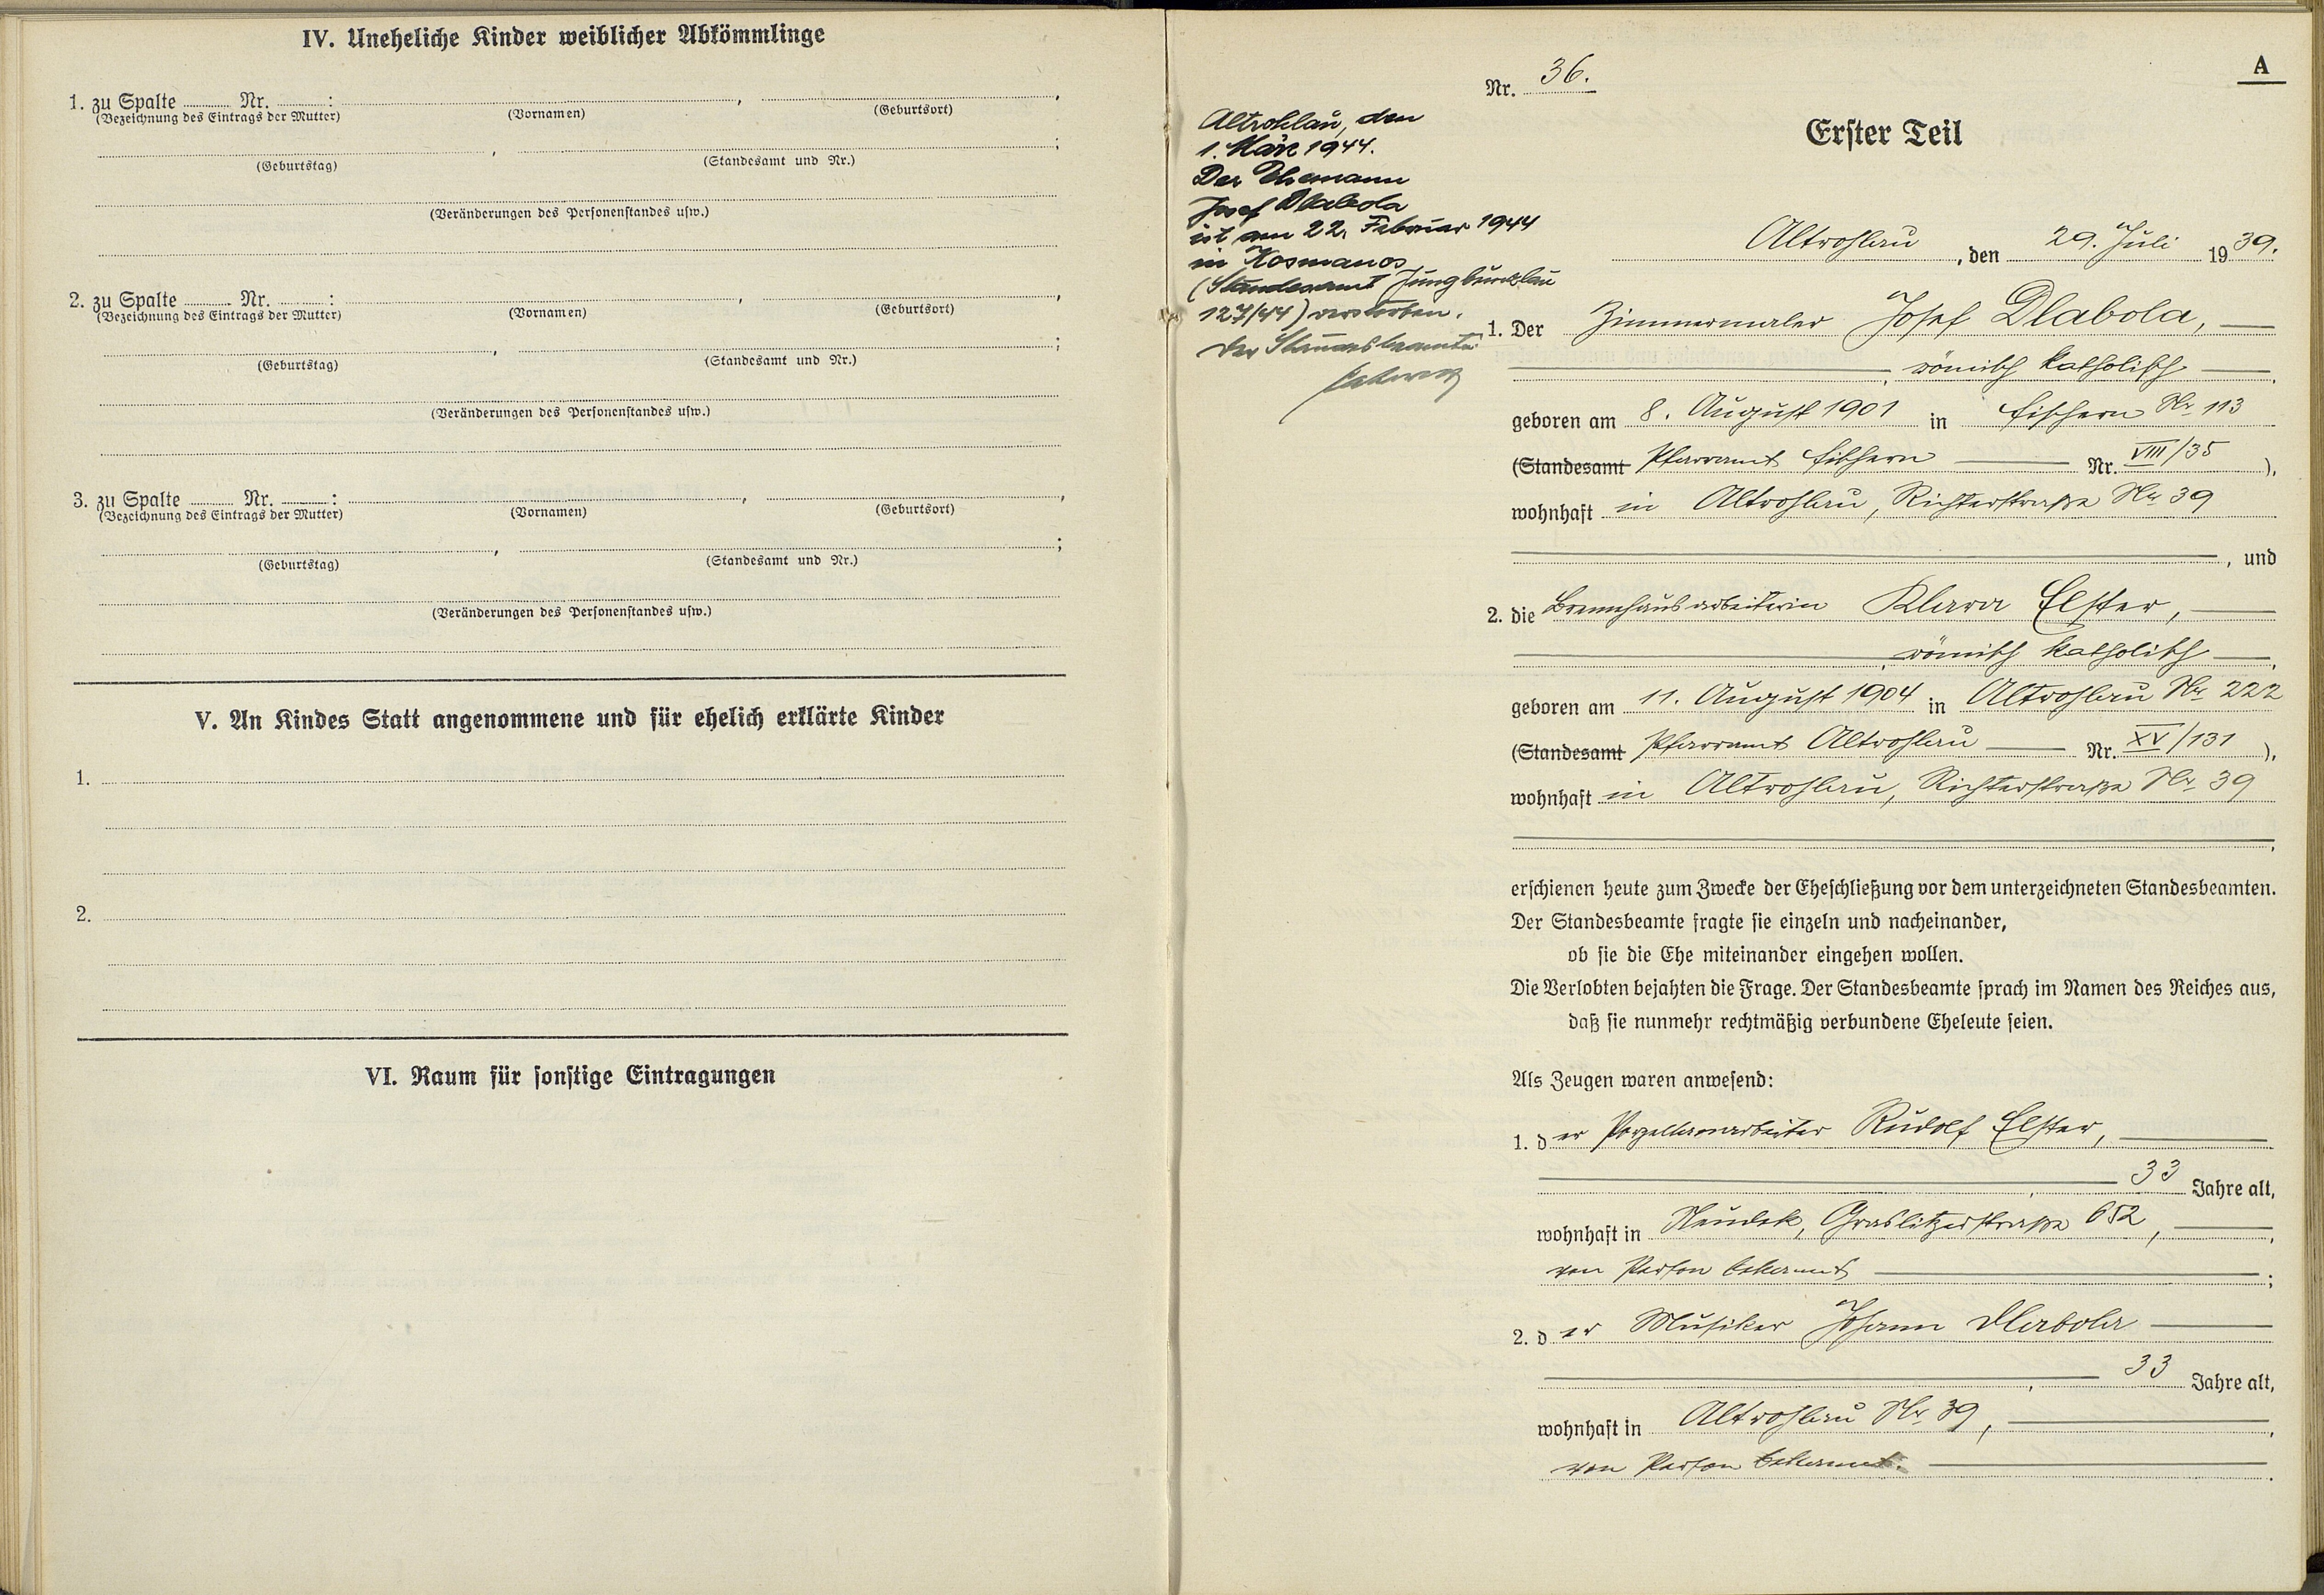 IV. Uneheliche Kinder weiblicher Abkömmlinge
1. zu Spalte ........ Nr. ........ : ........ , ........ ,
(Bezeichnung des Eintrags der Mutter) (Vornamen) (Geburtsort)
........ , ........ ;
(Geburtstag) (Standesamt und Nr.)
(Veränderungen des Personenstandes usw.)
2. zu Spalte ........ Nr. ........ : ........ , ........ ,
(Bezeichnung des Eintrags der Mutter) (Vornamen) (Geburtsort)
........ , ........ ;
(Geburtstag) (Standesamt und Nr.)
(Veränderungen des Personenstandes usw.)
3. zu Spalte ........ Nr. ........ : ........ , ........ ,
(Bezeichnung des Eintrags der Mutter) (Vornamen) (Geburtsort)
........ , ........ ;
(Geburtstag) (Standesamt und Nr.)
(Veränderungen des Personenstandes usw.)
V. An Kindes Statt angenommene und für ehelich erklärte Kinder
1.
2.
VI. Raum für sonstige Eintragungen
A
Nr. 36.
Altrohlau, den
1. März 1944.
Der Ehemann
Josef Dlabola
ist am 22. Februar 1944
in Kosmanos
(Standesamt Jungbunzlau
127/44) verstorben.
Der Standesbeamte:
Erster Teil
Altrohlau, den 29. Juli 1939.
1. Der Zimmermaler Josef Dlabola,
, römisch katholisch ,
geboren am 8. August 1901 in Fischern Nr. 113
(Standesamt Pfarramt Fischern Nr. VIII/35 ),
wohnhaft in Altrohlau, Richterstraße Nr. 39
, und
2. die Brennhausarbeiterin Klara Elster,
, römisch katholisch ,
geboren am 11. August 1904 in Altrohlau Nr. 222
(Standesamt Pfarramt Altrohlau Nr. XV/131 ),
wohnhaft in Altrohlau, Richterstraße Nr. 39
,
erschienen heute zum Zwecke der Eheschließung vor dem unterzeichneten Standesbeamten.
Der Standesbeamte fragte sie einzeln und nacheinander,
ob sie die Ehe miteinander eingehen wollen.
Die Verlobten bejahten die Frage. Der Standesbeamte sprach im Namen des Reiches aus,
daß sie nunmehr rechtmäßig verbundene Eheleute seien.
Als Zeugen waren anwesend:
1. der Porzellanarbeiter Rudolf Elster,
, 33 Jahre alt,
wohnhaft in Neudek, Graslitzerstraße 652, ,
von Person bekannt ;
2. der Musiker Johann Dlabola
, 33 Jahre alt,
wohnhaft in Altrohlau Nr. 39, ,
von Person bekannt. .